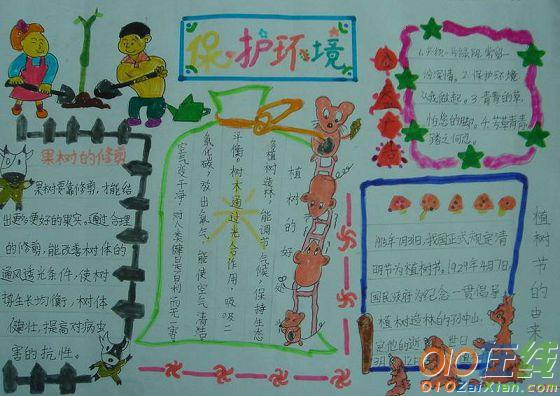 保护环境
果树的修剪
果树要靠修剪,才能结
出更多更好的果实。通过合理
的修剪,能改善树体的
通风透光条件,使树
势生长均衡,树体
健壮,提高对病虫
害的抗性。
植树的好处
多植树造林,能调节气候,保持生态
平衡,树木通过光合作用,吸收二
氧化碳,放出氧气,能使空气清洁
空气变干净,对人类健
深情。2.保护环境
从我做起。3.青青的草,
怕您的脚。4.芳草青青
踏之何忍。
植树节的由来
我国正式规定清
明节为植树节。1929年4月7日
国民政府为纪念一贯倡导
植树造林的孙中山
010在线
010ZaiXian.com